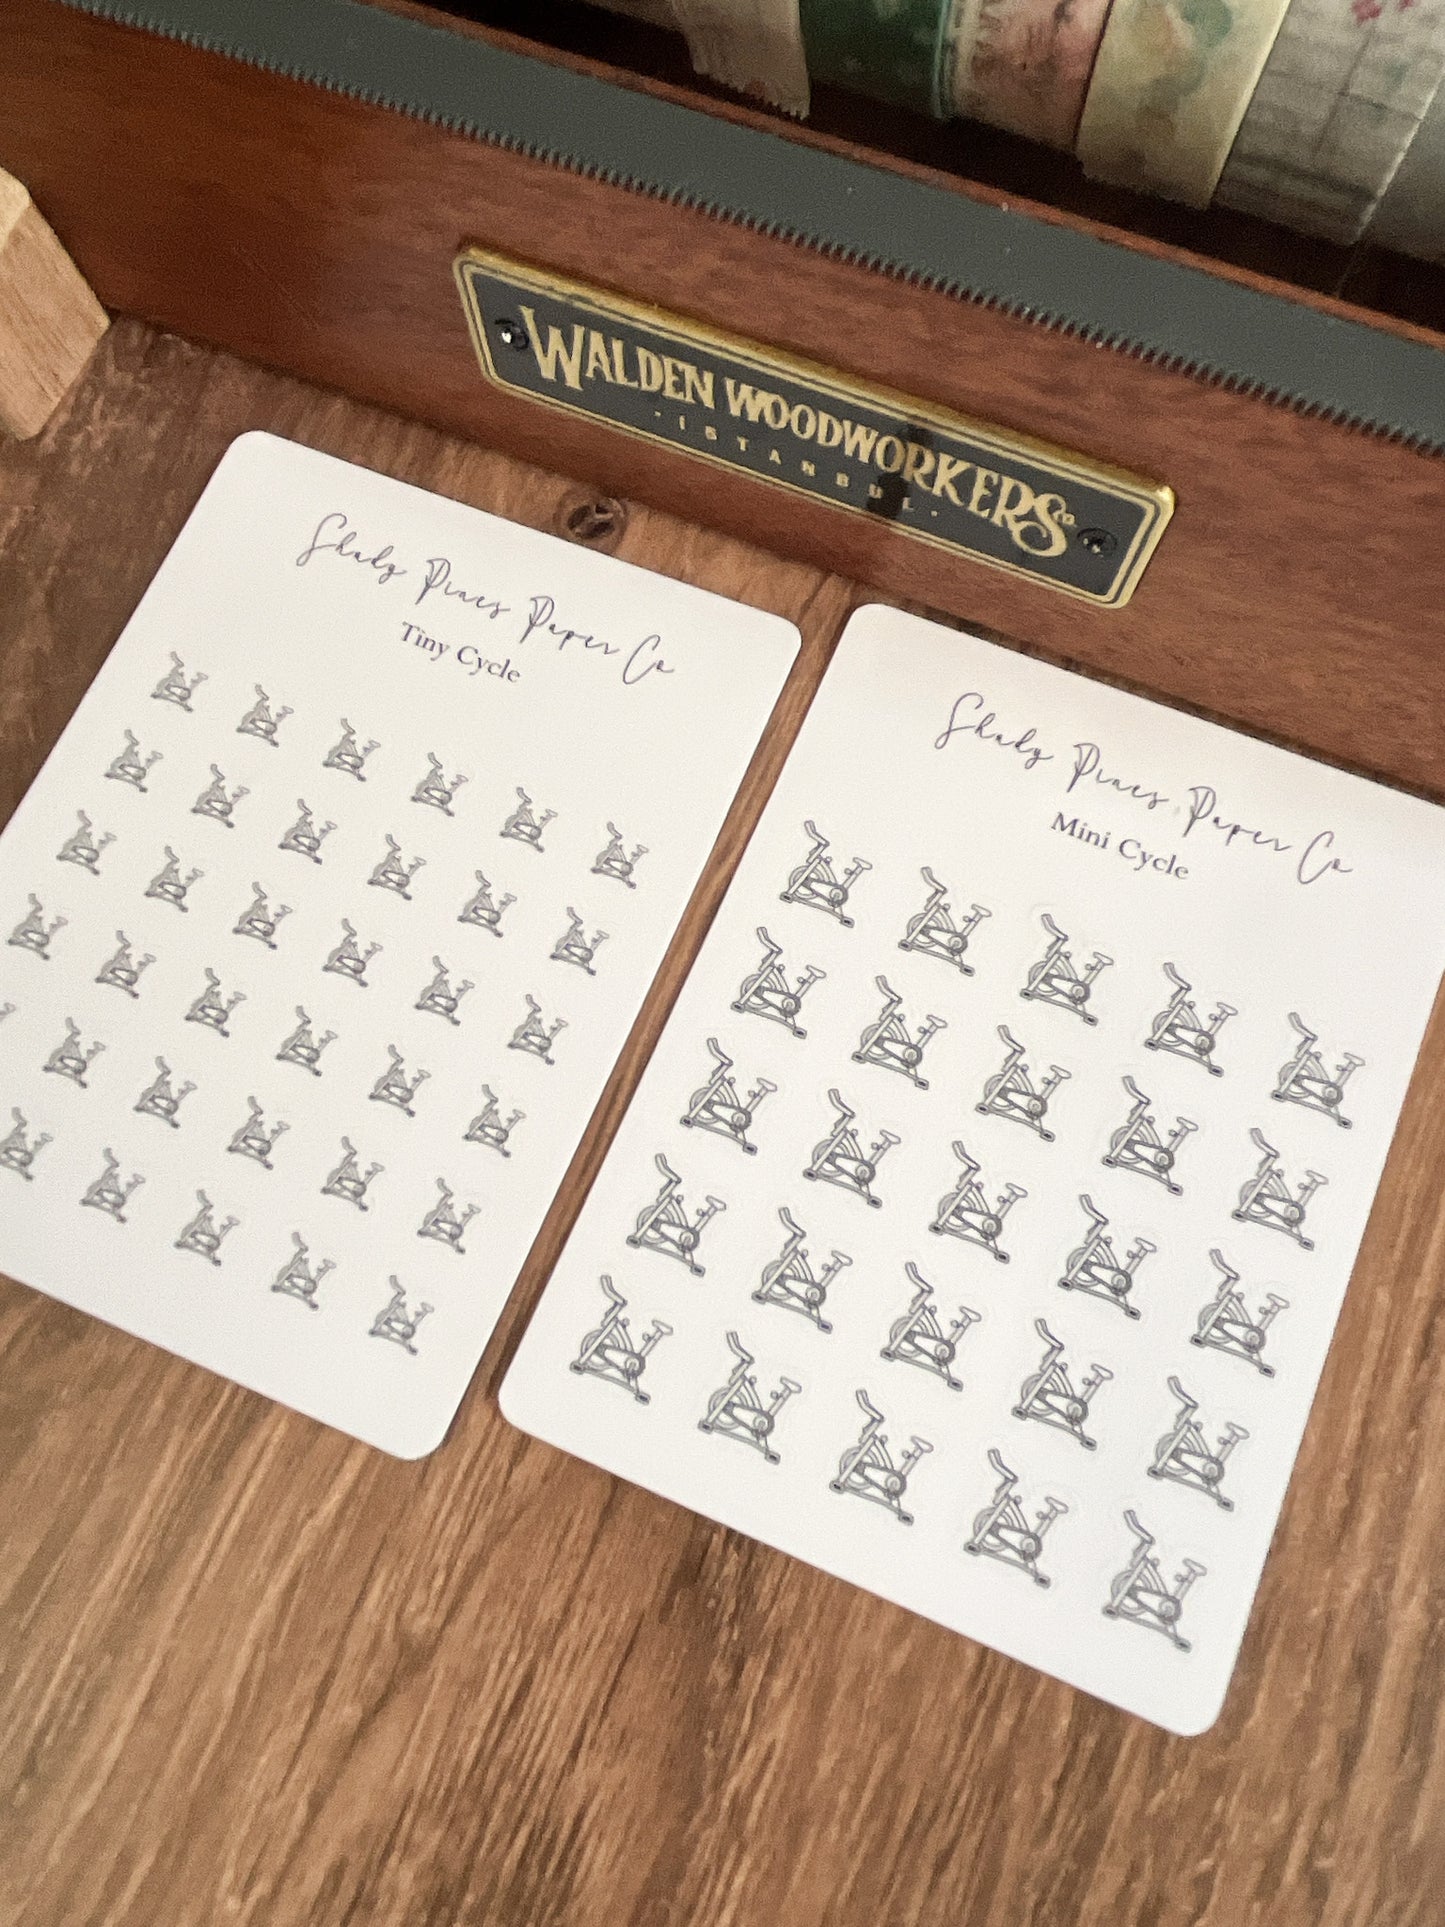 WALDEN WOODWORKERS Co.
· ISTANBUL ·
Shady Pines Paper Co
Tiny Cycle
Shady Pines Paper Co
Mini Cycle